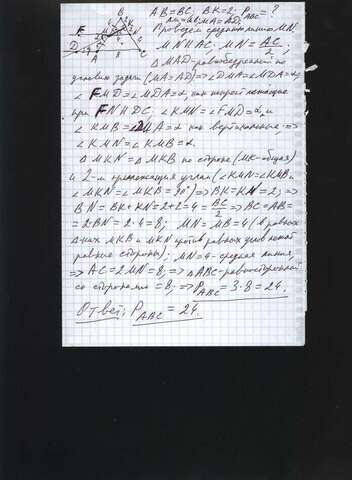 AB=BC, BK=2; P_ABC=?
MA=AD;
Проведем среднюю линию MN.
MN∥AC. MN=AC/2;
△MAD-равнобедренный по
условию задачи (MA=AD)⇒∠DMA=∠MDA=α;
∠FMD=∠MDA=α, как накрест лежащие
при FN∥DC. ∠KMN=∠FMD=α, и
∠KMB=∠DMA=α как вертикальные ⇒
∠KMN=∠KMB=α.
△MKN=△MKB по стороне (MK-общая)
и 2-м прилежащим углам (∠KMN=∠KMB,
∠MKN=∠MKB=90°)⇒BK=KN=2;⇒
BN=BK+KN=2+2=4=BC/2⇒BC=AB=
=2·BN=2·4=8; MN=MB=4 (в равных
△-ках MKB и MKN против равных углов лежат
равные стороны); MN=4-средняя линия,
⇒AC=2MN=8;⇒△ABC-равносторонний
со сторонами =8;⇒P_ABC=3·8=24.
Ответ: P_ABC=24.